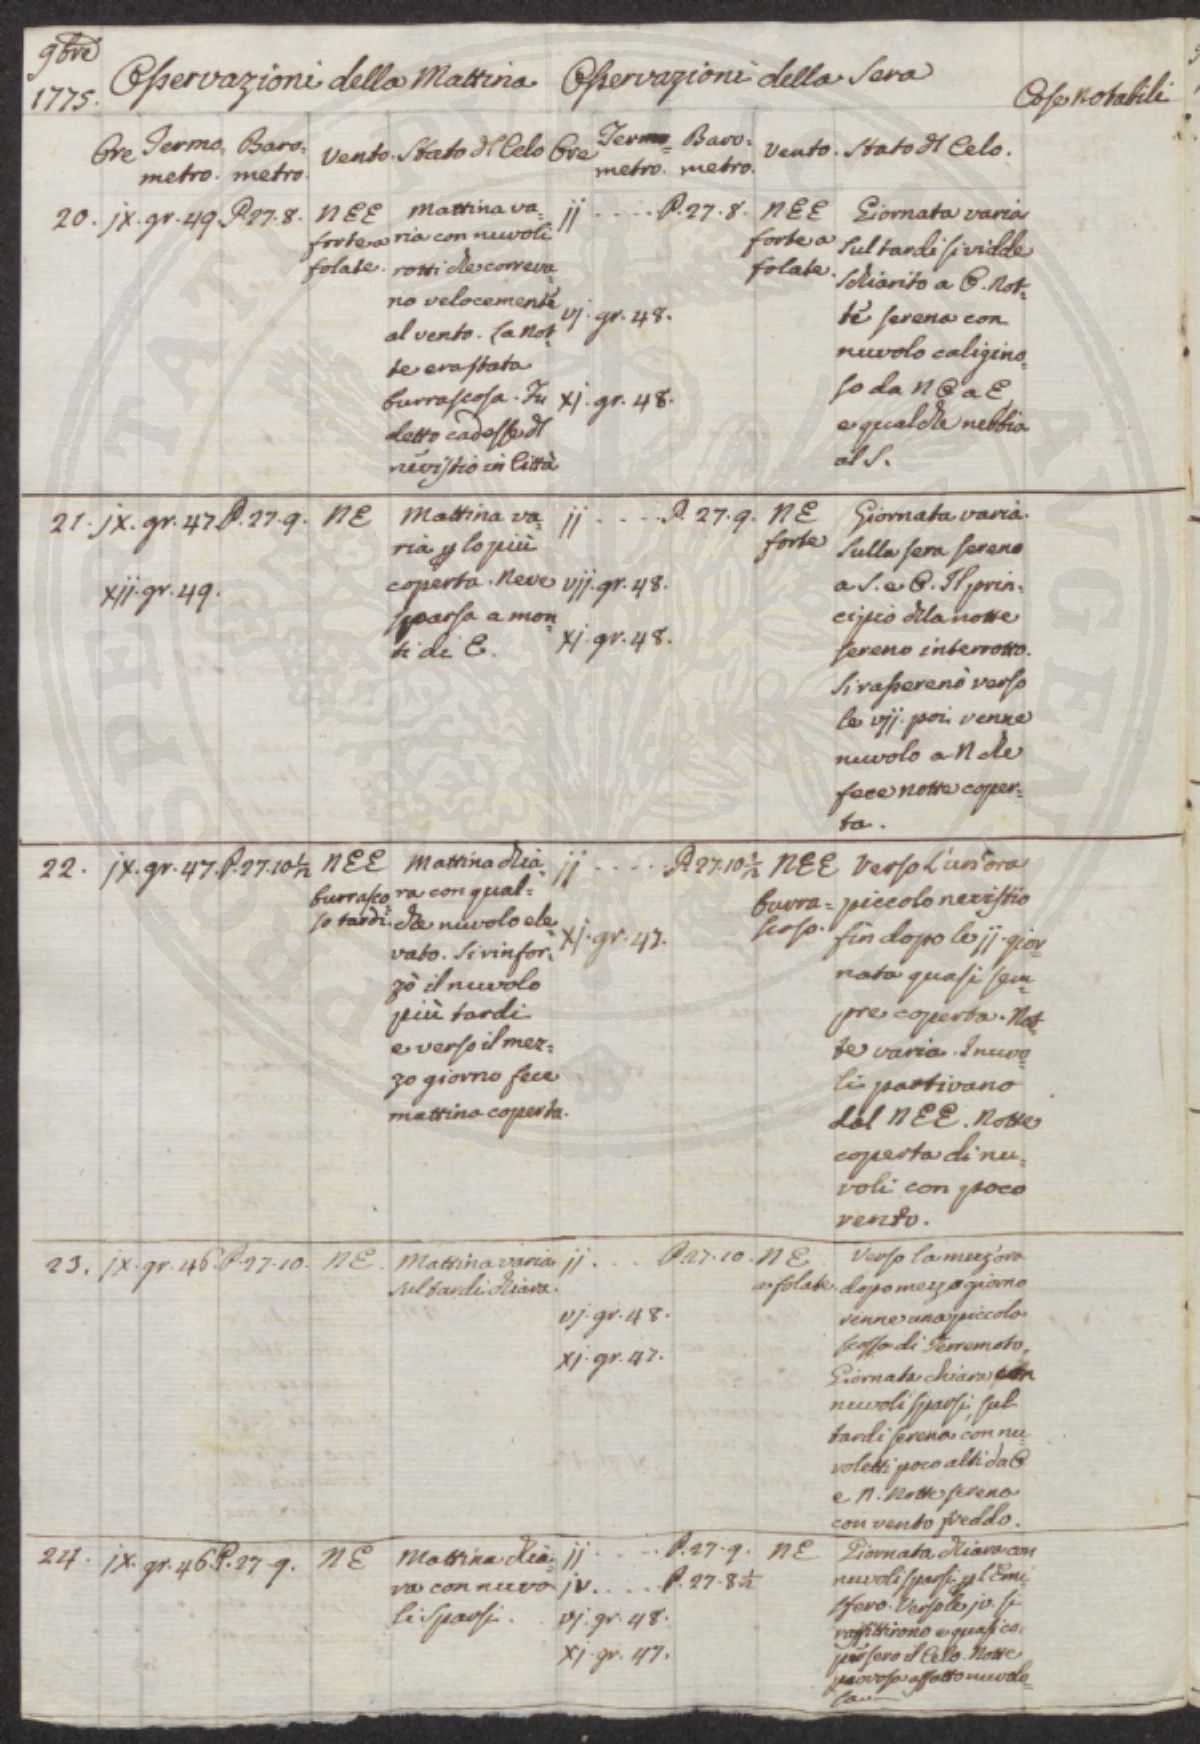 9bre
1775.
Osservazioni della Mattina
Osservazioni della Sera
Cose Notabili
Ore
Termo.
metro.
Baro.
metro.
Vento.
Stato dl Celo
Ore
Termo
metro.
Baro.
metro.
Vento.
Stato dl Celo.
20.
jx. gr. 49.
P. 27. 8.
NEE
forte a
folate.
Mattina va=
ria con nuvoli
rotti che correva
no velocemente
al vento. La Not
te era stata
burrascosa. Fu
detto cadesse dl
nevistio in Città
jj
P. 27. 8.
vj. gr. 48.
xj. gr. 48.
NEE
forte a
folate.
Giornata varia
sul tardi si vidde
schiarito a O. Not=
te serena con
nuvolo caligino=
so da N O a E,
e qualche nebbia
al S.
21.
jx. gr. 47.
xij. gr. 49.
P. 27. 9.
NE
Mattina va=
ria p lo più
coperta. Neve
sparsa a mon
ti di E.
jj
P. 27. 9.
vij. gr. 48.
xj. gr. 48.
NE
forte
Giornata varia.
Sulla sera sereno
a S. e O. Il prin=
cipio dla notte
sereno interrotto.
Si rasserenò verso
le vij. poi venne
nuvolo a N che
fece notte coper=
ta.
22.
jx. gr. 47.
P. 27. 10 1/2
NEE
burrasco
so tardi.
Mattina chia=
ra con qual=
che nuvolo ele
vato. Si rinfor=
zò il nuvolo
più tardi
e verso il mez=
zo giorno fece
mattina coperta.
jj
P. 27. 10 1/2
xj. gr. 47.
NEE
burra=
scoso.
Verso l'un'ora
piccolo nevistio
fin dopo le jj. gior
nata quasi sem=
pre coperta. Not
te varia. I nuvo=
li partivano
dal NEE. Notte
coperta di nu=
voli con poco
vento.
23.
jx. gr. 46.
P. 27. 10.
NE.
Mattina varia
sul tardi chiara.
jj
P. 27. 10.
vj. gr. 48.
xj. gr. 47.
NE
a folate.
Verso la mezz'ora
dopo mezzogiorno
venne una piccola
scossa di Terremoto.
Giornata chiara con
nuvoli sparsi, sul
tardi serena con nu
voletti poco alti da O
e N. Notte serena
con vento freddo.
24.
jx. gr. 46.
P. 27. 9.
NE
Mattina chia=
ra con nuvo
li sparsi.
jj
P. 27. 9.
jv.
P. 27. 8 1/2
vj. gr. 48.
xj. gr. 47.
NE
Giornata chiara con
nuvoli sparsi p l'Emi
sfero. Verso le jv. si
raffittirono e quasi co=
persero il Celo. Notte
affatto nuvolo=
sa